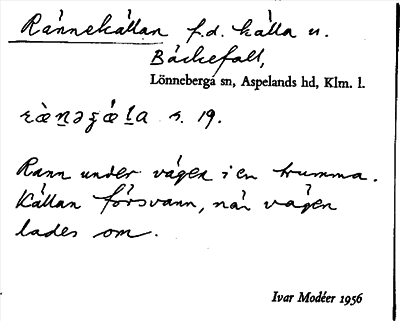 Rännekällan f.d. källa u.
Bäckefall,
Lönneberga sn, Aspelands hd, Klm. l.
s. 19.
Rann under vägen i en trumma.
Källan försvann, när vägen
lades om.
Ivar Modéer 1956